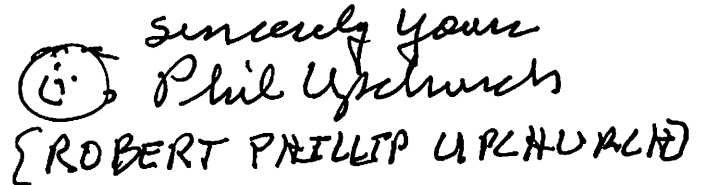 sincerely yours
Phil Upchurch
[ROBERT PHILLIP UPCHURCH]